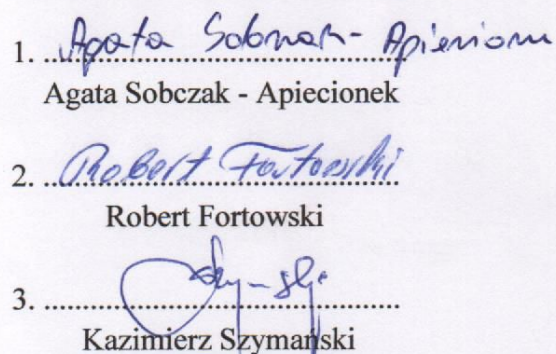 1. Agata Sobczak - Apiecionek
Agata Sobczak - Apiecionek
2. Robert Fortowski
Robert Fortowski
3.
Kazimierz Szymański